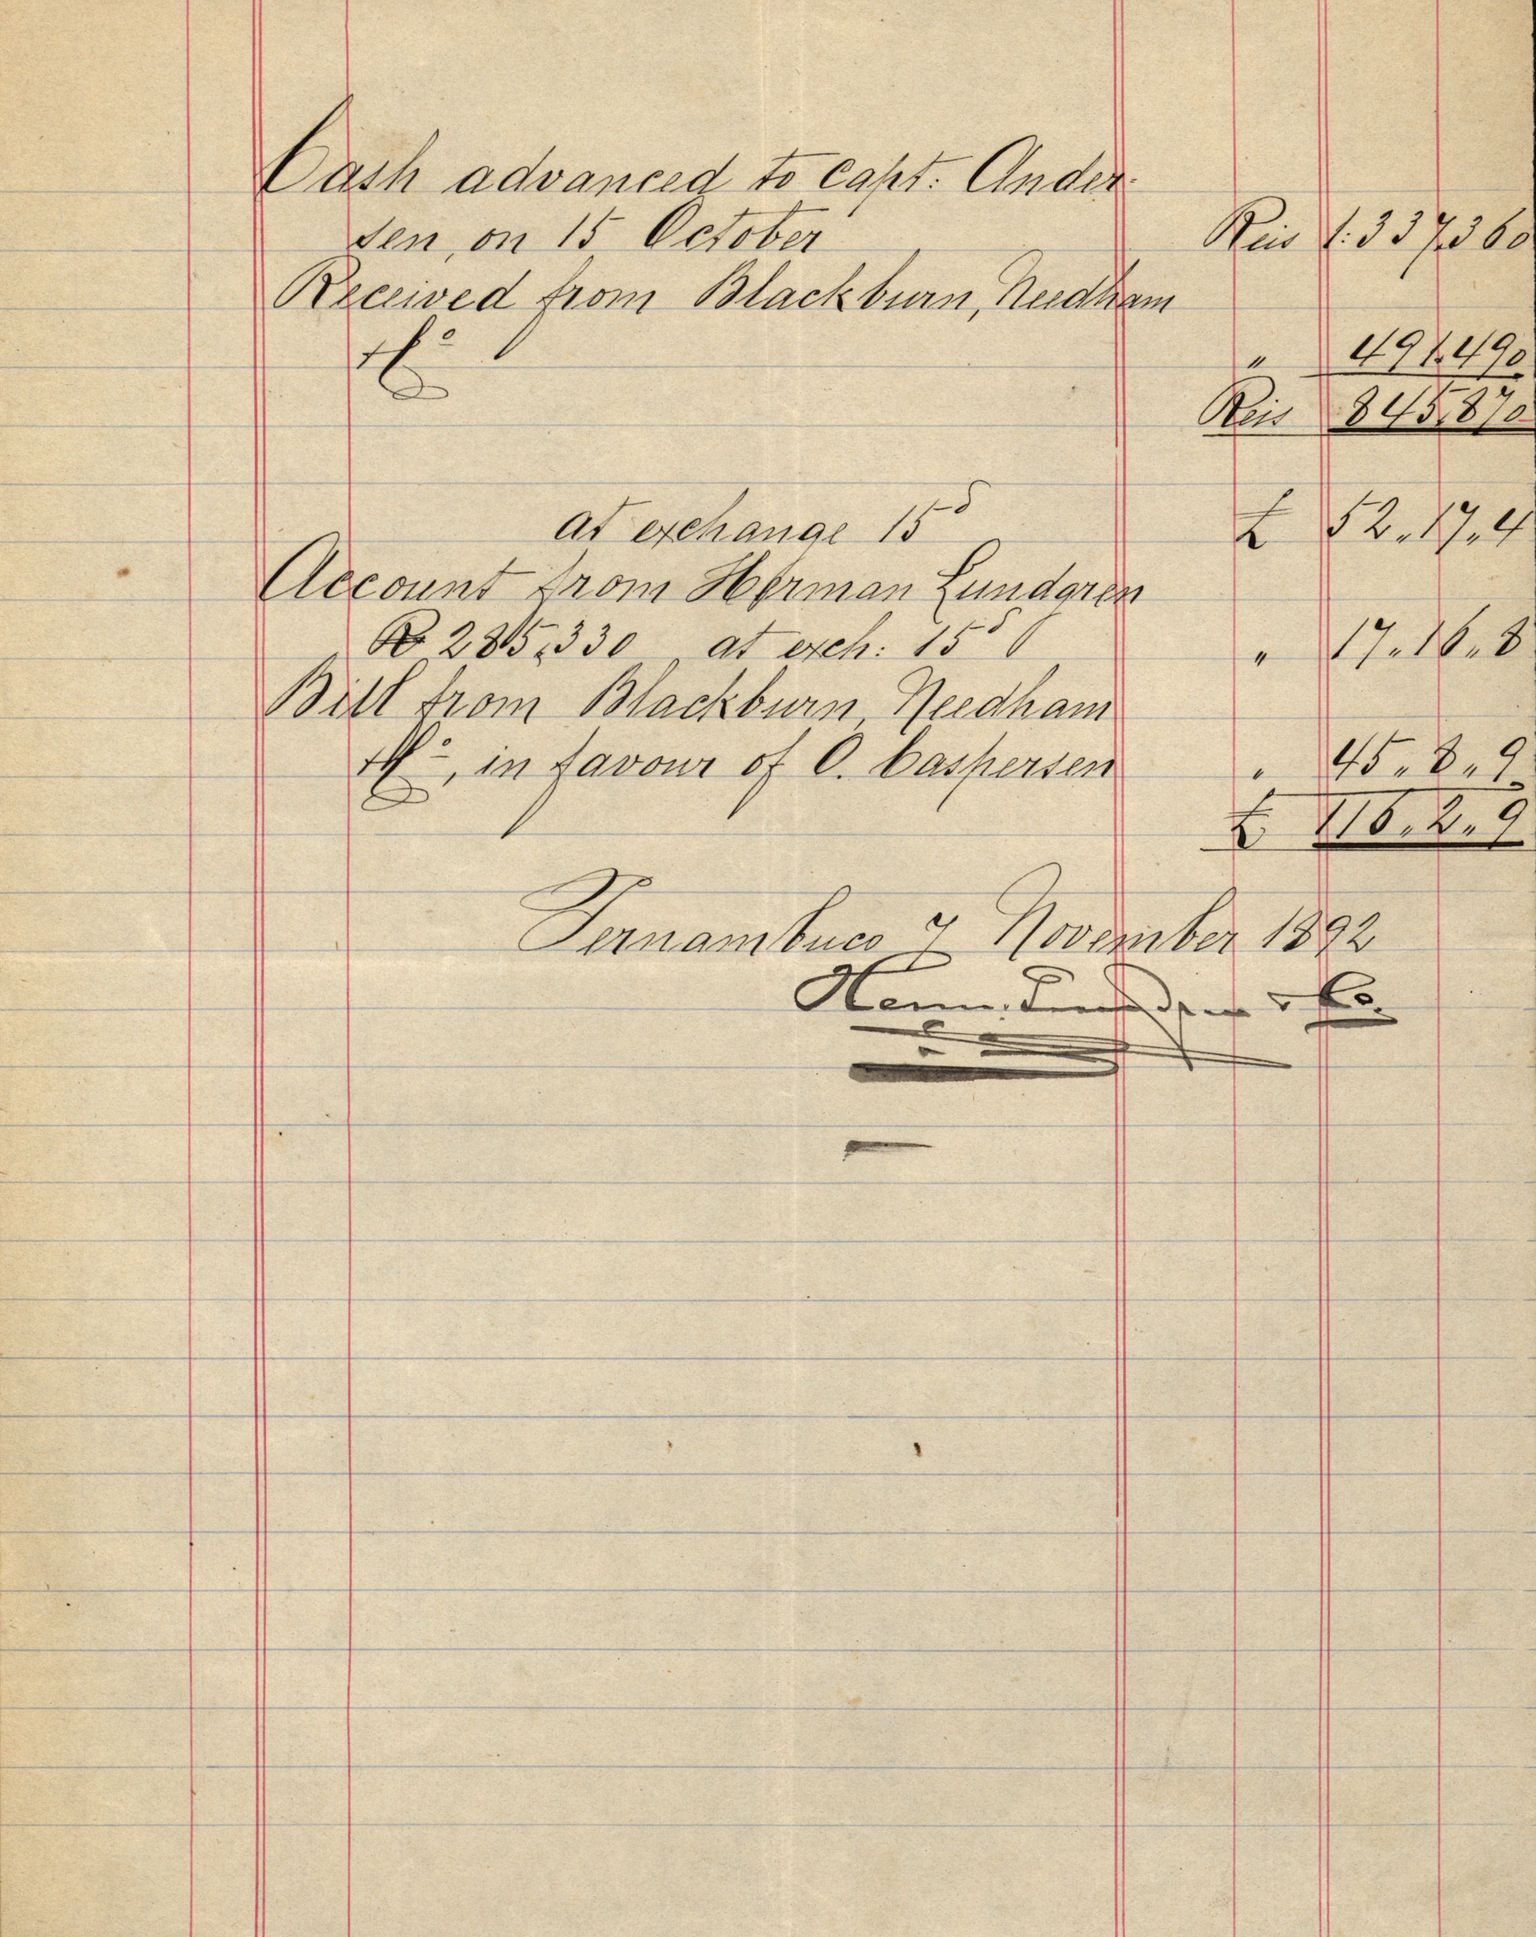 Cash advanced to Capt: Ander-
sen, on 15 October Reis 1:337.360
Received from Blackburn, Needham
& Co " 491.490
Reis 845.870
at exchange 15d £ 52.17.4
Account from Herman Lundgren
Rs 285.330 at exch: 15d " 17.16.8
Bill from Blackburn, Needham
& Co, in favour of O. Caspersen " 45.8.9
£ 116.2.9
Pernambuco 7 November 1892
Herm. Lundgren & Co.